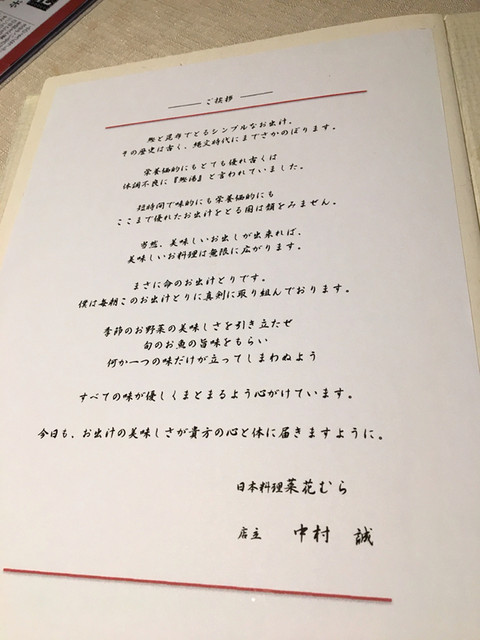 ご挨拶
鰹と昆布でとるシンプルなお出汁。
その歴史は古く、縄文時代にまでさかのぼります。
栄養価的にもとても優れ古くは
体調不良に『鰹湯』と言われていました。
短時間で味的にも栄養価的にも
ここまで優れたお出汁をとる国は類をみません。
当然、美味しいお出しが出来れば、
美味しいお料理は無限に広がります。
まさに命のお出汁とりです。
僕は毎朝このお出汁とりに真剣に取り組んでおります。
季節のお野菜の美味しさを引き立たせ
旬のお魚の旨味をもらい
何か一つの味だけが立ってしまわぬよう
すべての味が優しくまとまるよう心がけています。
今日も、お出汁の美味しさが貴方の心と体に届きますように。
日本料理菜花むら
店主 中村 誠